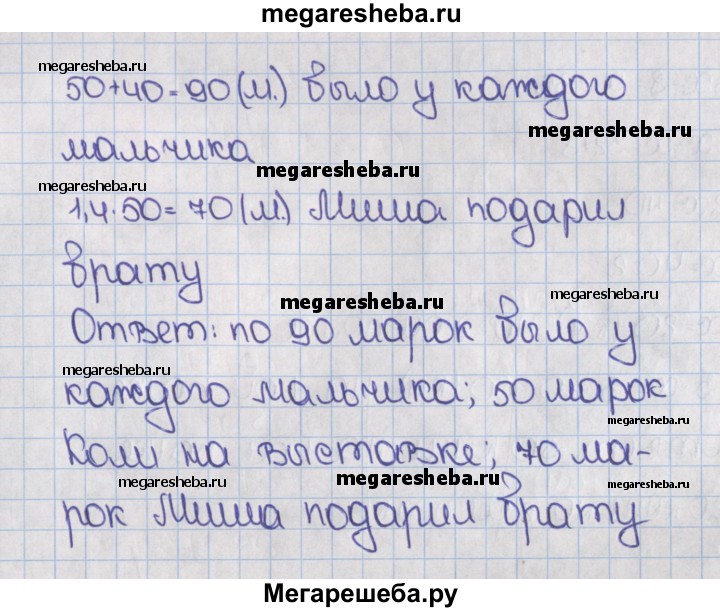 megaresheba.ru
megaresheba.ru
50+40=90(м.) было у каждого
megaresheba.ru
мальчика
megaresheba.ru
megaresheba.ru
1,4·50=70(м.) Миша подарил
брату
megaresheba.ru
megaresheba.ru
Ответ: по 90 марок было у
megaresheba.ru
каждого мальчика; 50 марок
megaresheba.ru
Коли на выставке; 70 ма-
megaresheba.ru
megaresheba.ru
megaresheba.ru
рок Миша подарил брату
Мегарешеба.ру